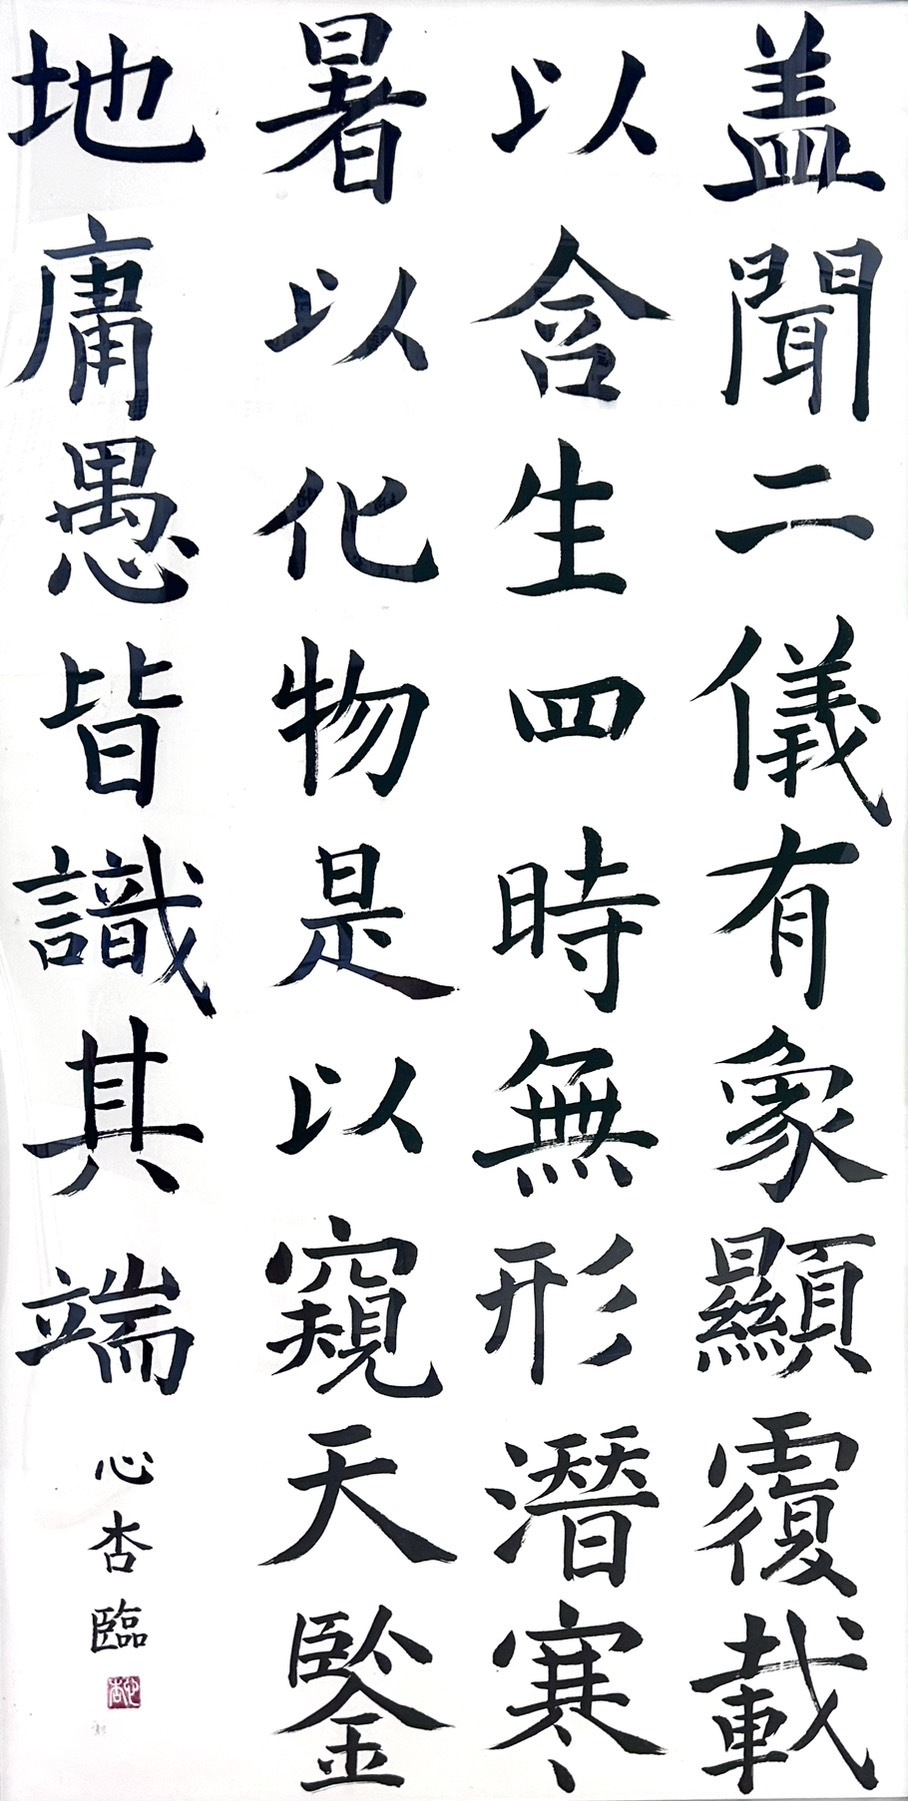 盖聞二儀有象顯覆載
以含生四時無形潛寒
暑以化物是以窺天鑒
地庸愚皆識其端
心杏臨
心杏